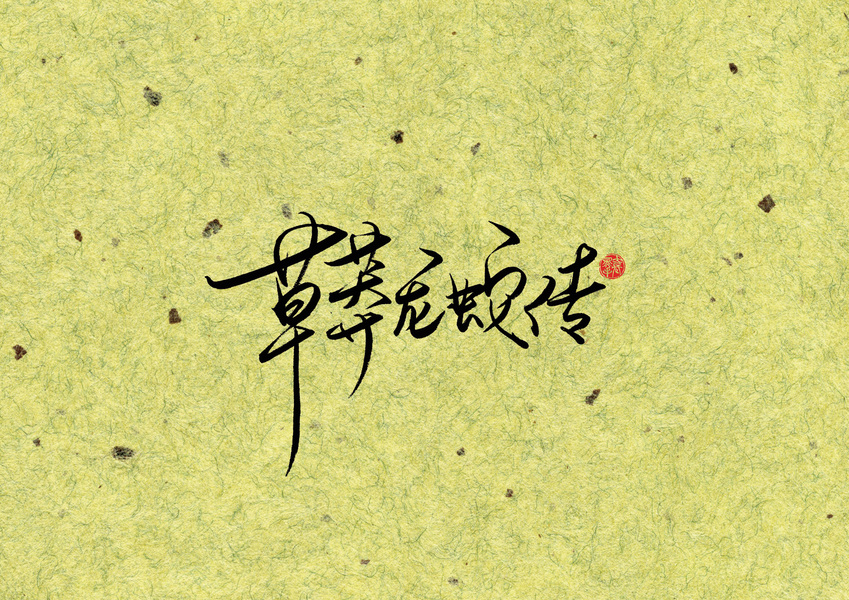 草莽龙蛇传